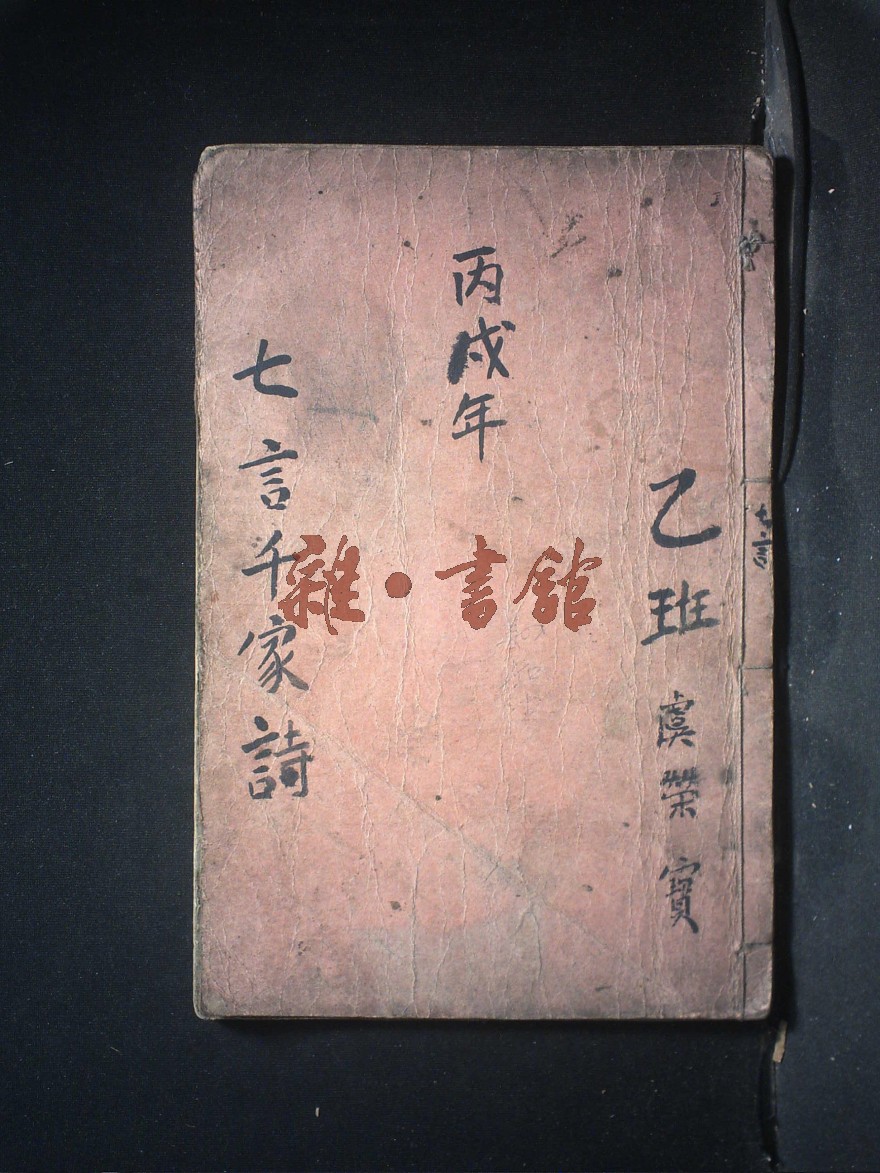 乙班 虞榮寶
丙戌年
七言千家詩
七言
雜·書館